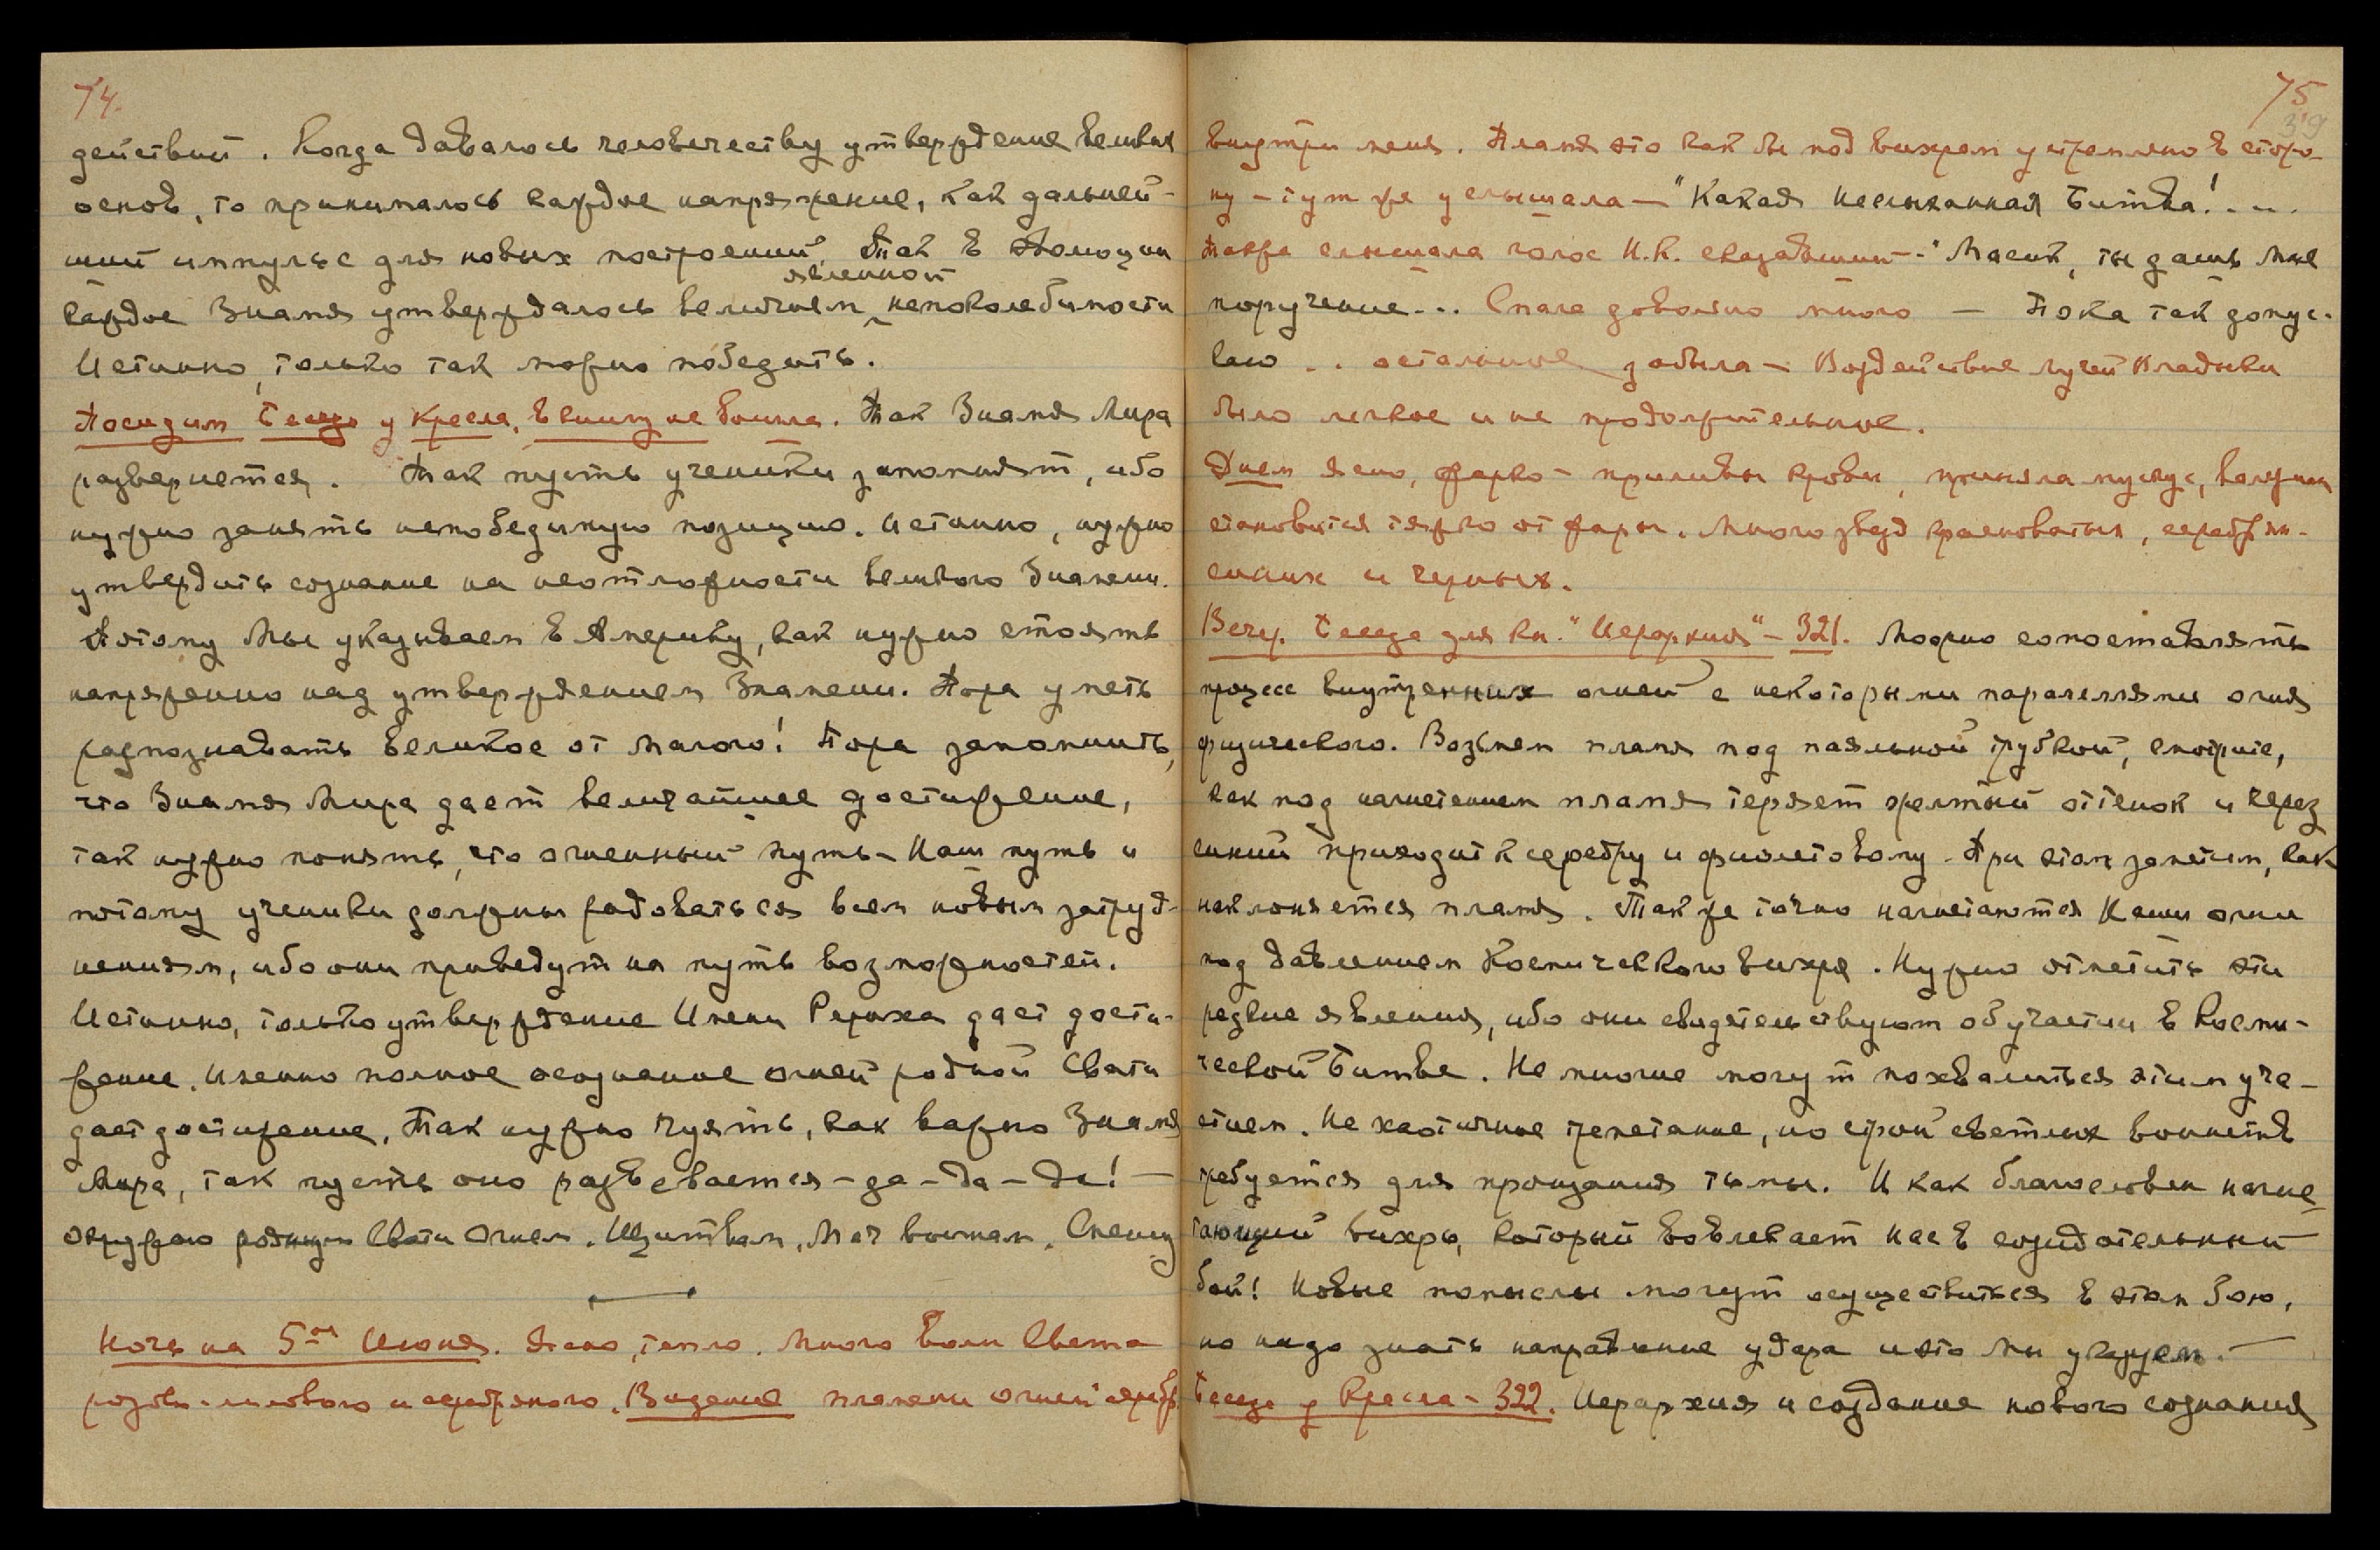 74.
действий. Когда давалось человечеству утверждение великих
основ, то принималось каждое напряжение, как дальней-
ший импульс для новых построений. Так в эволюции
явленной
каждое Знамя утверждалось величием непоколебимости
Истинно, только так можно победить.
Посидим Беседа у Кресла, в книгу не вошла. Так Знамя Мира
развернется. Так пусть ученики запомнят, ибо
нужно занять непобедимую позицию. Истинно, нужно
утвердить сознание на неотложности великого Знамени.
Потому Мы указываем в Америку, как нужно стоять
напряженно над утверждением Знамени. Пора уметь
распознавать великое от малого! Пора запомнить,
что Знамя Мира дает величайшее достижение,
так нужно понять, что огненный путь – Наш путь и
потому ученики должны радоваться всем новым затруд-
нениям, ибо они приведут на путь возможностей.
Истинно, только утверждение Имени Рериха дает дости-
жение. Именно полное осознание огней родной Свати
дает достижение. Так нужно чуять, как важно Знамя
Мира, так пусть оно развевается – да – да – да! —
окружаю родную Свати Огнем. Щит вам, Меч вынман. Спешу
Ночь на 5ое Июня. Ясно, тепло. Много волн Света
розово-лилового и серебряного. Видение пламени огней серебр.
75
39
внутри меня. Пламя это как бы под вихрем устремлено в сторо-
ну – тут же услышала – "Какая неслыханная Битва! ...
также слышала голос Н.К. сказавший – "Масик, ты дашь Мне
поручение... Спала довольно много — Пока так допус-
каю .. остальное забыла – Воздействие лучей Владыки
было легкое и не продолжительное.
Днем ясно, жарко – приливы крови, приняла мускус,
становится тяжко от жары. Много звезд красноватых, серебрян.
синих и черных.
Вечер. Беседа для кн. "Иерархия" – 321. Можно сопоставлять
процесс внутренних огней с некоторыми параллелями огня
физического. Возьмем пламя под паяльной трубкой, смотрите,
как под нагнетением пламя теряет желтый оттенок и через
синий приходит к серебру и фиолетовому. При этом заметим, как
наклоняется пламя. Так же точно нагнетаются Наши огни
под давлением Космического вихря. Нужно отметить эти
редкие явления, ибо они свидетельствуют об участии в Косми-
ческой Битве. Не многие могут похвалиться этим уча-
стием. Не хаотичное трепетание, но строй светлых воинств
требуется для пронзания тьмы. И как благословен нагне-
тающий вихрь, который вовлекает нас в созидательный
бой! Новые помыслы могут осуществиться в этом бою,
но надо знать направление удара и это мы укажем. —
Беседа у Кресла – 322. Иерархия и создание нового сознания